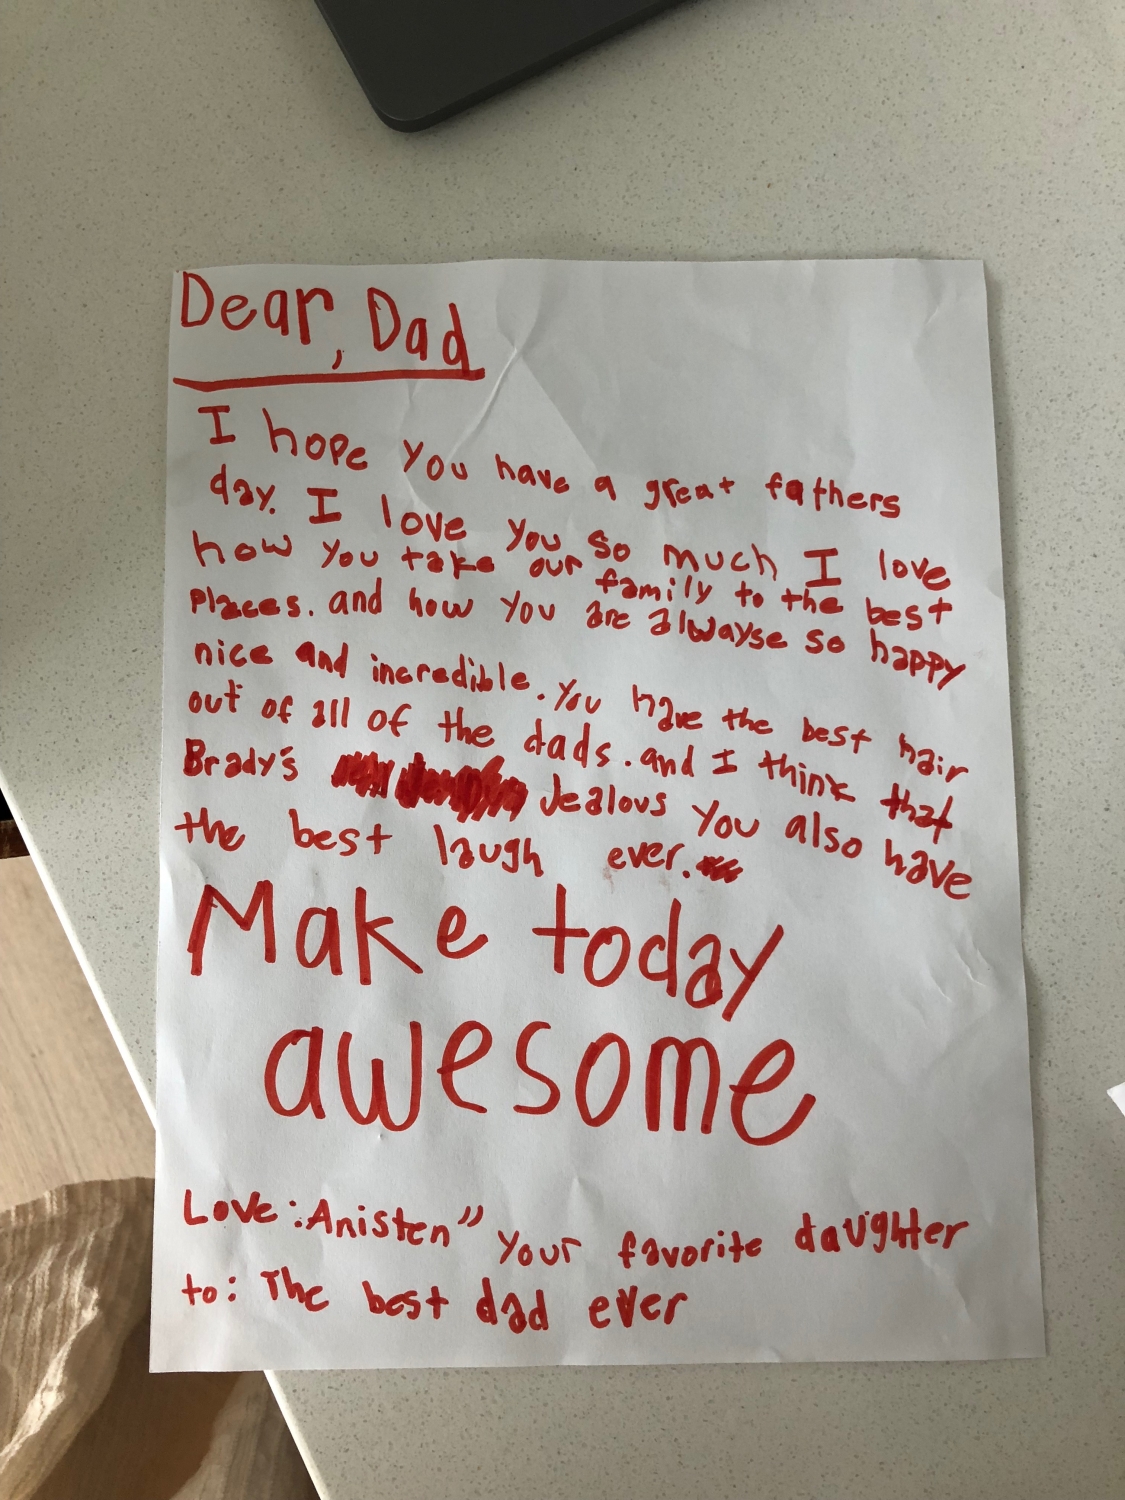 Dear, Dad
I hope you have a great fathers
day. I love you so much I love
how you take our family to the best
places. and how you are alwayse so happy
nice and incredible. you have the best hair
out of all of the dads. and I think that
Brady's Jealous you also have
the best laugh ever.
Make today
awesome
Love: Anisten" your favorite daughter
to: The best dad ever